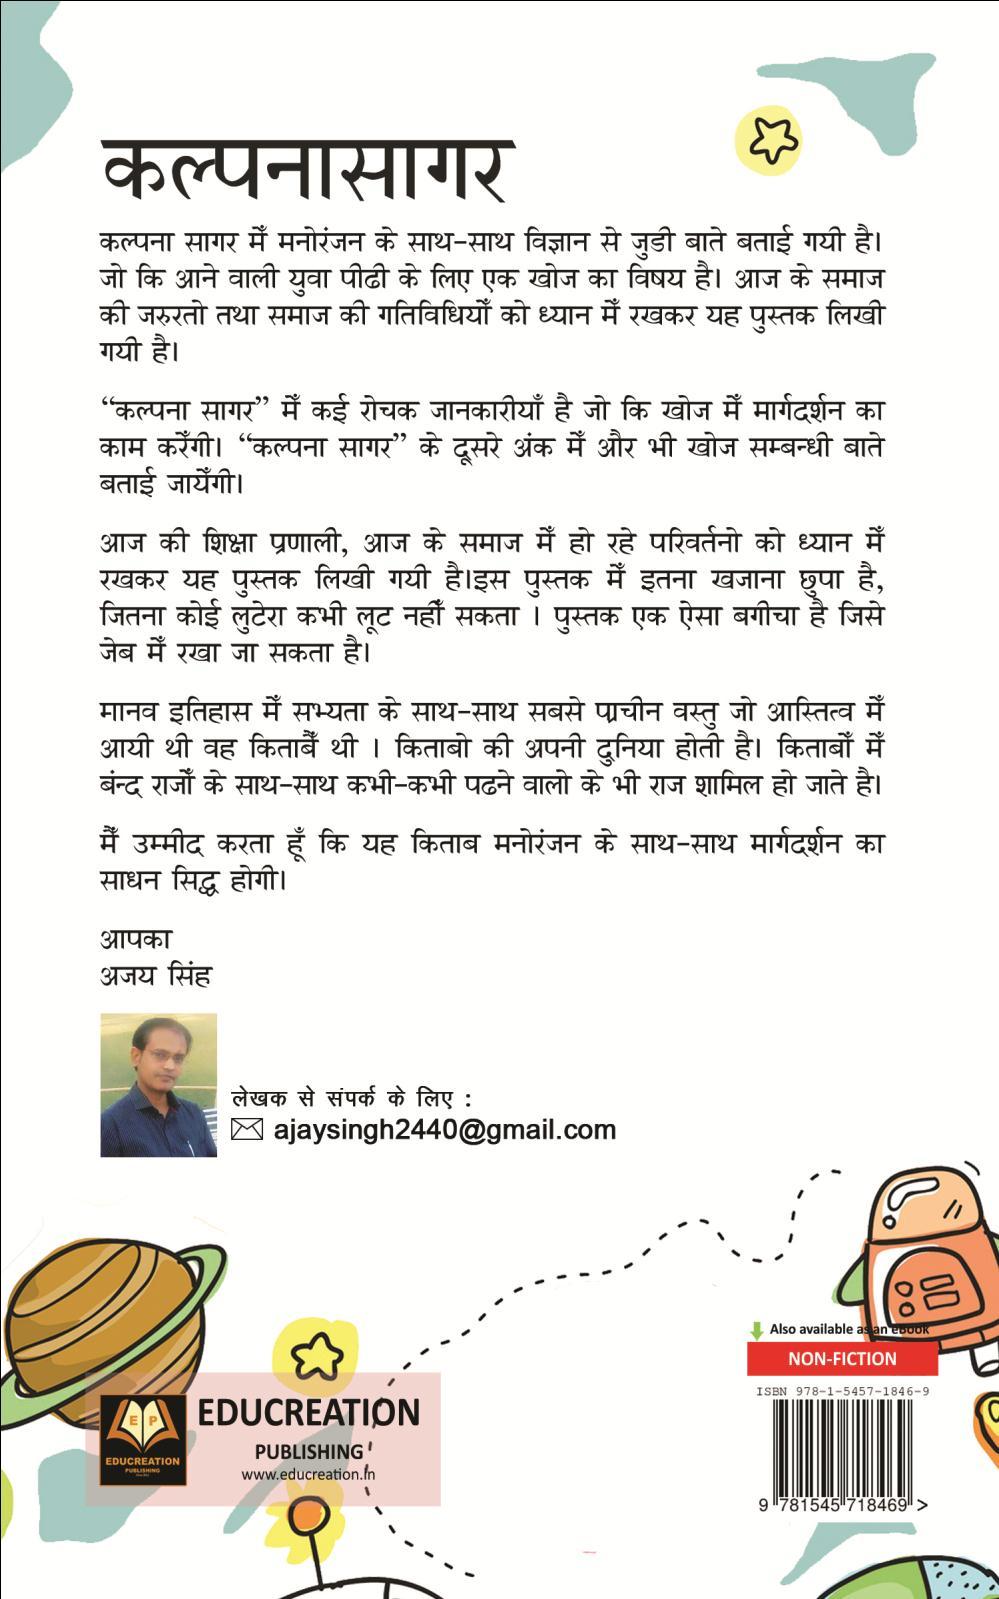 कल्पनासागर
कल्पना सागर मेँ मनोरंजन के साथ-साथ विज्ञान से जुडी बाते बताई गयी है।
जो कि आने वाली युवा पीढी के लिए एक खोज का विषय है। आज के समाज
की जरुरतो तथा समाज की गतिविधियोँ को ध्यान मेँ रखकर यह पुस्तक लिखी
गयी है।
“कल्पना सागर” मेँ कई रोचक जानकारीयाँ है जो कि खोज मेँ मार्गदर्शन का
काम करेँगी। “कल्पना सागर” के दूसरे अंक मेँ और भी खोज सम्बन्धी बाते
बताई जायेँगी।
आज की शिक्षा प्रणाली, आज के समाज मेँ हो रहे परिवर्तनो को ध्यान मेँ
रखकर यह पुस्तक लिखी गयी है।इस पुस्तक मेँ इतना खजाना छुपा है,
जितना कोई लुटेरा कभी लूट नहीँ सकता । पुस्तक एक ऐसा बगीचा है जिसे
जेब मेँ रखा जा सकता है।
मानव इतिहास मेँ सभ्यता के साथ-साथ सबसे प्राचीन वस्तु जो आस्तित्व मेँ
आयी थी वह किताबेँ थी । किताबो की अपनी दुनिया होती है। किताबोँ मेँ
बंन्द राजोँ के साथ-साथ कभी-कभी पढने वालो के भी राज शामिल हो जाते है।
मैँ उम्मीद करता हूँ कि यह किताब मनोरंजन के साथ-साथ मार्गदर्शन का
साधन सिद्ध होगी।
आपका
अजय सिंह
लेखक से संपर्क के लिए :
ajaysingh2440@gmail.com
Also available as an eBook
NON-FICTION
ISBN 978-1-5457-1846-9
9 781545 718469 >
E P
EDUCREATION
PUBLISHING
EDUCREATION
PUBLISHING
www.educreation.in